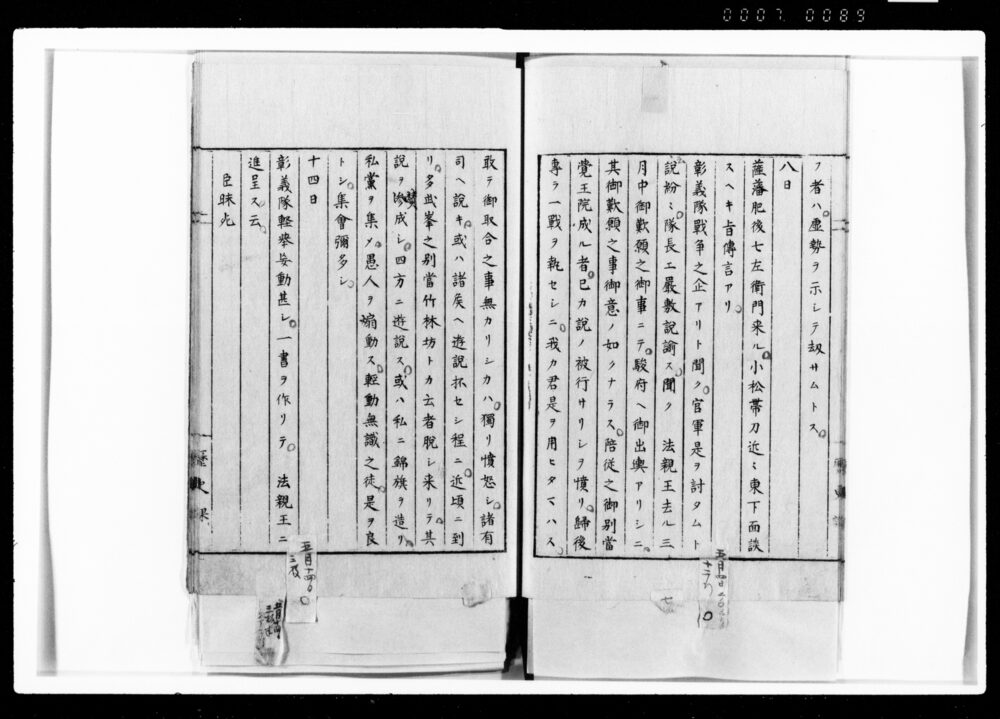 0007 0089
フ者ハ虚勢ヲ示シテ刼サムトス
八日
薩藩肥後七左衛門来ル小松帯刀近〻東下面談
スヘキ旨傳言アリ
彰義隊戦争之企アリト聞ク官軍是ヲ討タムト
説紛〻隊長エ嚴敷説諭ス聞ク 法親王去ル三
月中御歎願之御事ニテ駿府ヘ御出輿アリシニ
其御歎願之事御意ノ如クナラス陪従之御別當
覺王院成ル者己カ説ノ被行サリシヲ憤リ歸後
專ラ一戦ヲ執セシニ我カ君是ヲ用ヒタマハス
敢テ御取合之事無カリシカハ獨リ憤怒シ諸有
司ヘ説キ或ハ諸矦ヘ遊説抔セシ程ニ近頃ニ到
リ多武峯之別當竹林坊トカ云者脱シ来リテ其
説ヲ賛成シ四方ニ遊説ス或ハ私ニ錦旗ヲ造リ
私黨ヲ集メ愚人ヲ煽動ス輕動無識之徒是ヲ良
トシ集會彌多シ
十四日
彰義隊輕挙妄動甚シ一書ヲ作リテ 法親王ニ
進呈ス云
臣昧死
歴史課
五月十四日
五月四日
七